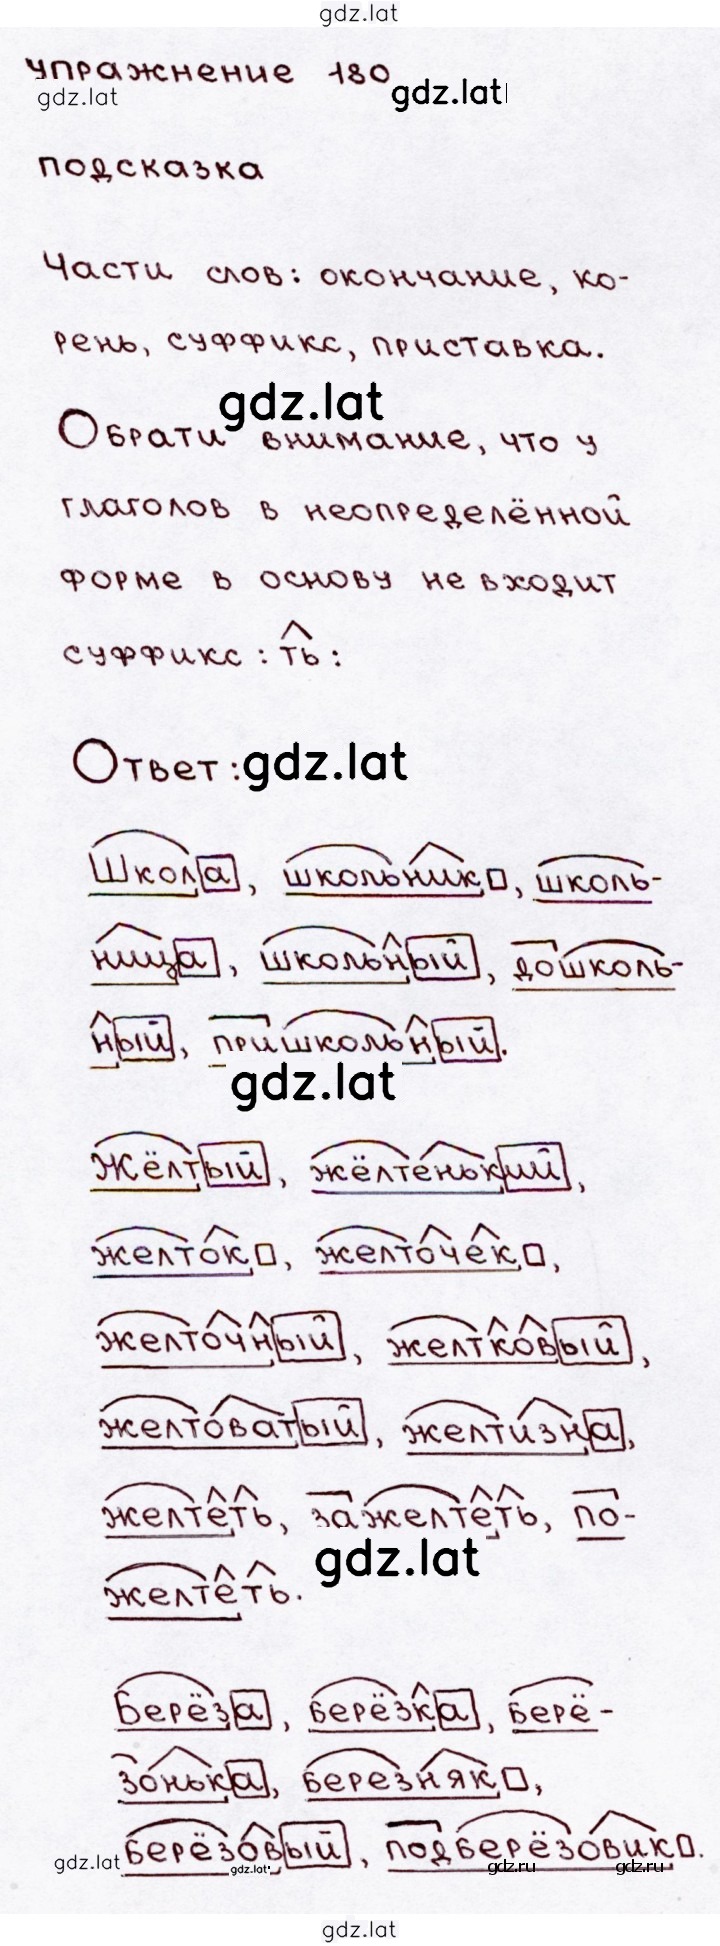 gdz.lat
упражнение 180
gdz.lat gdz.lat
подсказка
Части слов: окончание, ко-
рень, суффикс, приставка.
gdz.lat
Обрати внимание, что у
глаголов в неопределённой
форме в основу не входит
суффикс: ть:
Ответ: gdz.lat
Школа, школьник, школь-
ница, школьный, дошколь-
ный, пришкольный.
gdz.lat
Жёлтый, жёлтенький,
желток, желточек,
желточный, желтковый,
желтоватый, желтизна,
желтеть, зажелтеть, по-
gdz.lat
желтеть.
Берёза, берёзка, берё-
зонька, березняк,
берёзовый, подберёзовик.
gdz.lat gdz.lat gdz.ru gdz.ru
gdz.lat